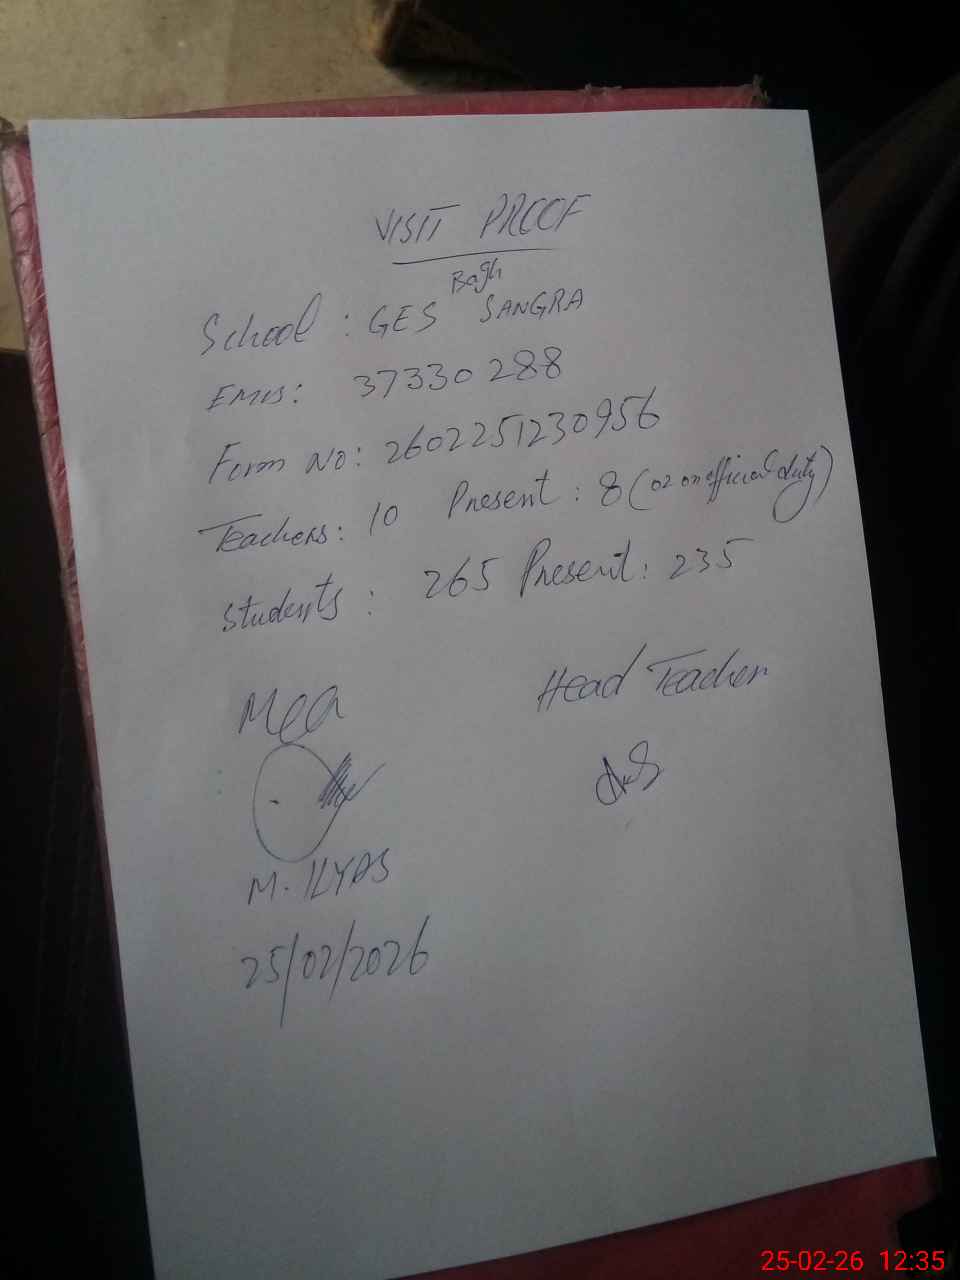 VISIT PROOF
Bagh
School : GES SANGRA
EMIS: 37330288
Form No: 2602251230956
Teachers: 10 Present : 8 (02 on official duty)
Students : 265 Present: 235
MEA Head Teacher
M. ILYAS
25/02/2026
25-02-26 12:35